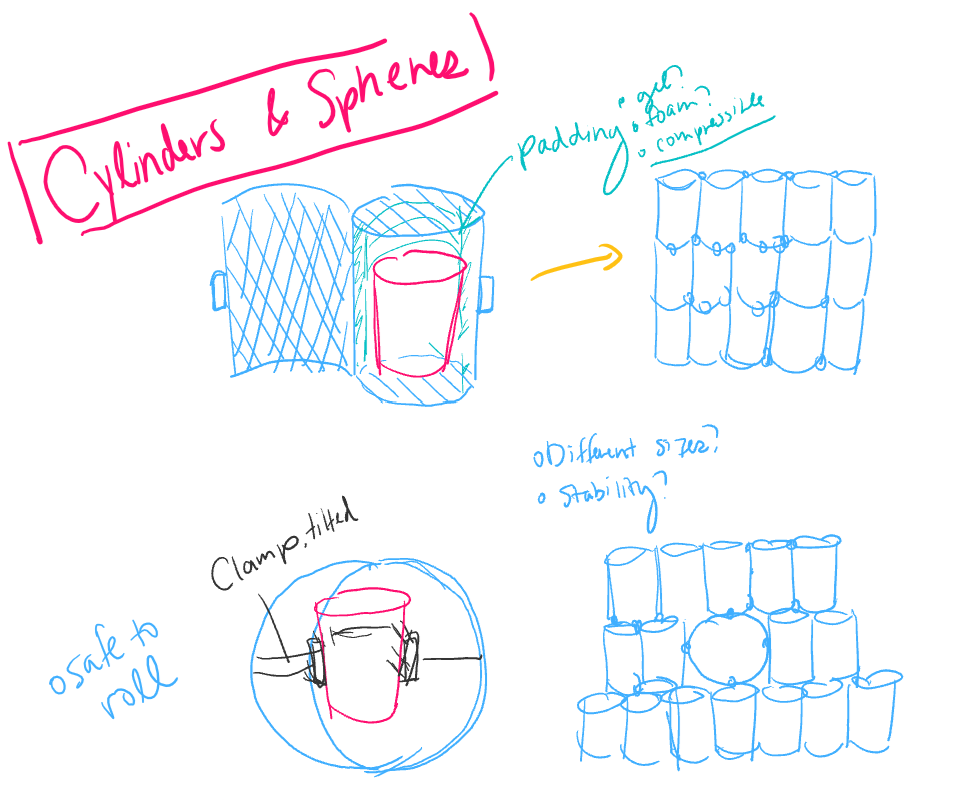 Cylinders & Spheres
padding:
• gel?
• foam?
• compressible
• Different sizes?
• Stability?
Clamp, tilted
• Safe to
roll